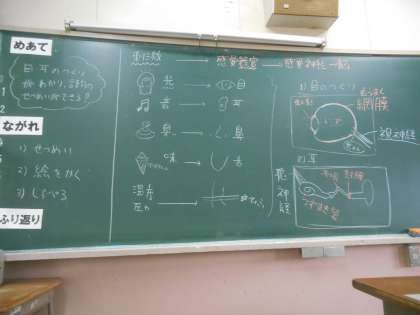 めあて
目、耳のつくり
がわかり、言葉の
せつめいができる？
ながれ
1) せつめい
2) 絵をかく
3) しらべる
ふり返り
刺激 → 感覚器官 → 感覚神経 → 脳
光 → 目
音 → 耳
臭 → 鼻
味 → 舌
温度
圧力
1) 目のつくり
もうまく
網膜
視神経
2) 耳
聴神経
うずまき管